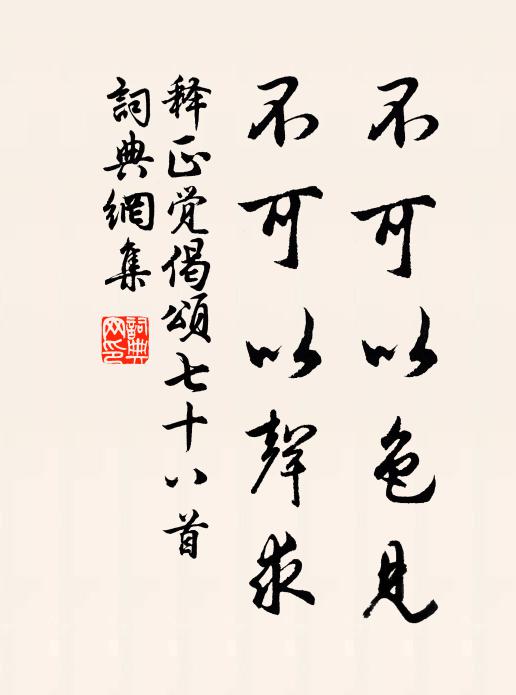 不可以色見
不可以聲求
释正觉偈頌七十八首
詞典網集
詞典网印